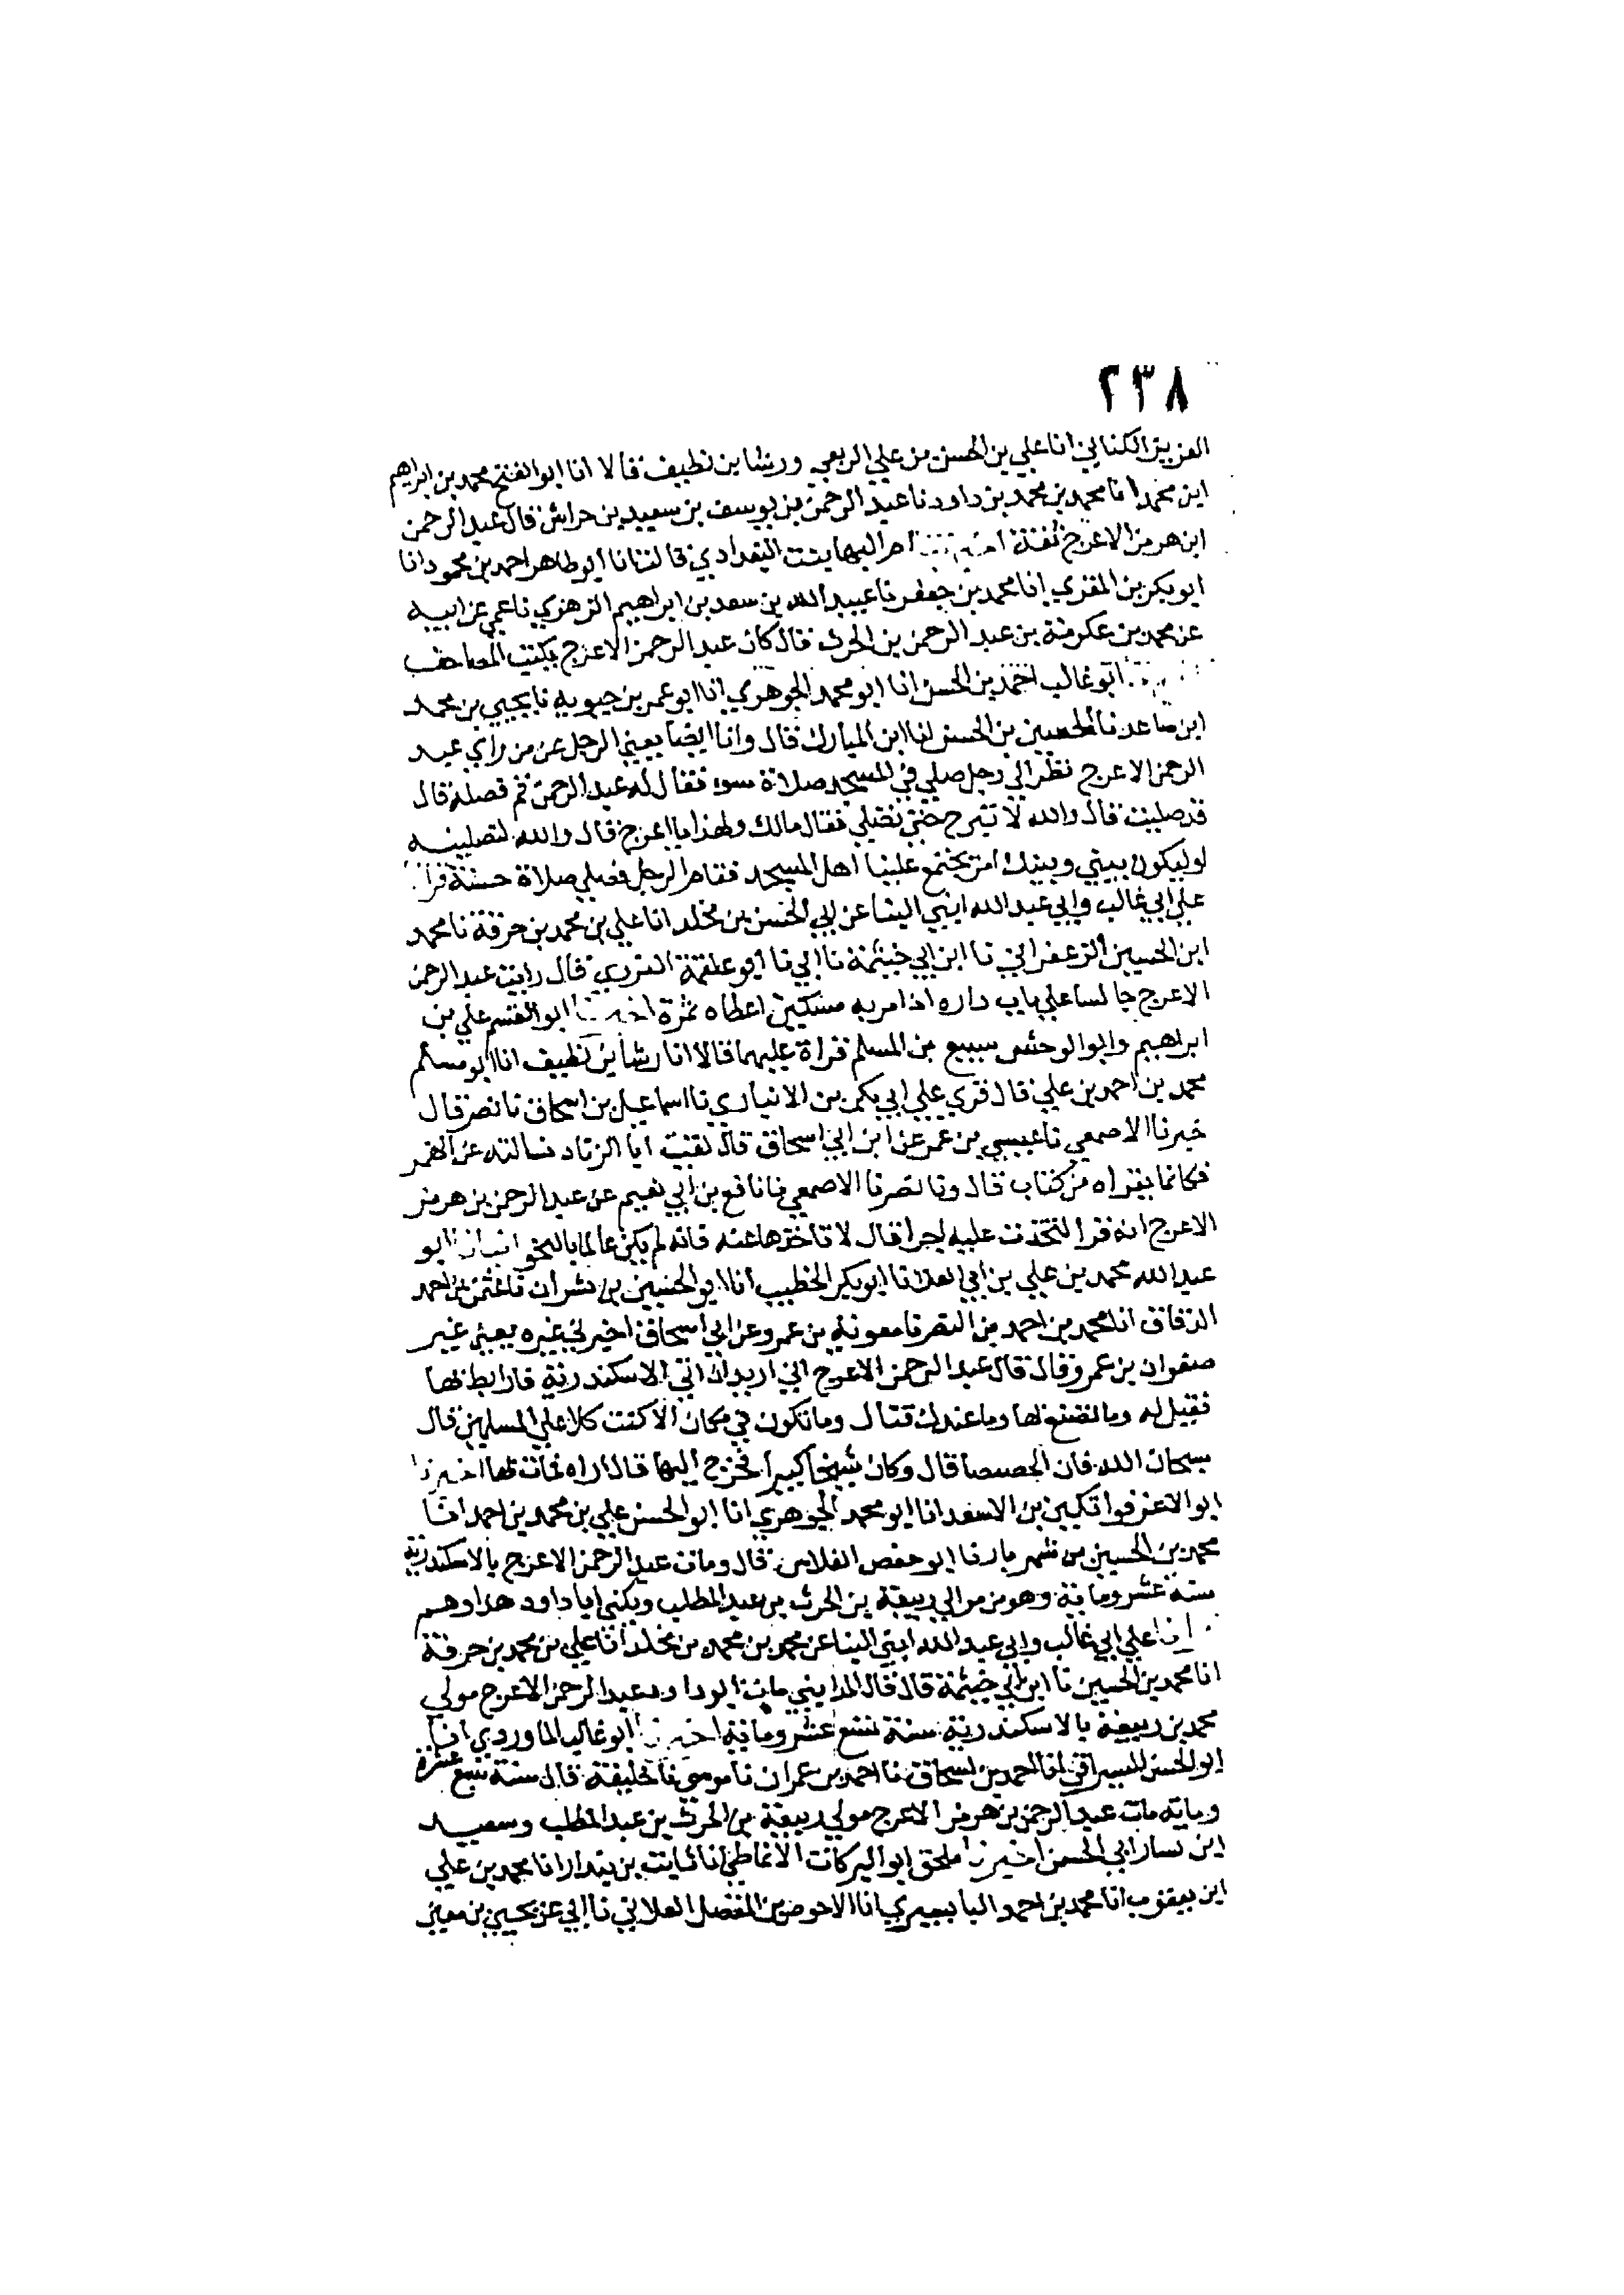 ٢٣٨
العزيز الكناني انا علي بن الحسن بن علي الربعي ورشا بن نظيف قالا انا ابو الفتح محمد بن ابراهيم
ابن محمد انا محمد بن محمد بن داود نا عبد الرحمن بن يوسف بن سعيد بن خراش قال عبد الرحمن
ابن هرمز الاعرج ثقة ام البها بنت البغدادي قالت انا ابو طاهر احمد بن محمود انا
ابو بكر بن المقري انا محمد بن جعفر نا عبيد الله بن سعد بن ابراهيم الزهري نا عمي عن ابيه
عن محمد بن عكرمة بن عبد الرحمن بن الحرث قال كان عبد الرحمن الاعرج يكتب المصاحف
ابو غالب احمد بن الحسن انا ابو محمد الجوهري انا ابو عمر بن حيويه نا يحيي بن محمد
ابن صاعد نا الحسين بن الحسن انا ابن المبارك قال وانا ايضا يعني الرجل عن من راي عبد
الرحمن الاعرج نظر الي رجل صلي في المسجد صلاة سوء فقال له عبد الرحمن قم فصله قال
قد صليت قال والله لا تبرح حتي تصلي فقال مالك ولهذا يا اعرج قال والله لتصلينه
لو ليكون بيني وبينك امر يجتمع علينا اهل المسجد فقام الرجل فصلي صلاة حسنة قرات
علي ابي غالب وابي عبد الله ابني البنا عن ابي الحسن بن مخلد انا علي بن محمد بن خزفة نا محمد
ابن الحسين الزعفراني نا ابن ابي خيثمة نا ابي نا ابو علقمة الفروي قال رايت عبد الرحمن
الاعرج جالسا علي باب داره اذا مر به مسكين اعطاه تمرة اخبرنا ابو القسم علي بن
ابراهيم وابو الوحش سبيع بن المسلم قراة عليهما قالا انا رشا بن نظيف انا ابو مسلم
محمد بن احمد بن علي قال قري علي ابي بكر بن الانباري نا اسماعيل بن اسحاق نا نصر قال
خبرنا الاصمعي نا عيسي بن عمر عن ابن ابي اسحاق قال لقيت ابا الزناد فسالته عن الهمز
فكانما يقراه من كتاب قال ونا نصر نا الاصمعي نا نافع بن ابي نعيم عن عبد الرحمن بن هرمز
الاعرج انه قرا لتخذت عليه اجرا قال لا تاخذها عنه فانه لم يكن عالما بالنحو انبانا ابو
عبد الله محمد بن علي بن ابي العلا نا ابو بكر الخطيب انا ابو الحسين بن بشران نا عثمن بن احمد
الدقاق انا محمد بن احمد بن النضر نا معوية بن عمرو عن ابي اسحاق اخبرني غيره يعني غير
صفوان بن عمرو قال قال عبد الرحمن الاعرج اني اريد ان اتي الاسكندرية فارابط بها
فقيل له وما تصنع بها وما عندك قتال وما تكون في مكان الا كنت كلا علي المسلمين قال
سبحان الله فان الحصصا قال وكان شيخا كبيرا فخرج اليها قال اراه فمات بها اخبرنا
ابو الاعز قراتكين بن الاسعد انا ابو محمد الجوهري انا ابو الحسن علي بن محمد بن احمد انا
محمد بن الحسين بن شهريار نا ابو حفص الفلاس قال ومات عبد الرحمن الاعرج بالاسكندرية
سنة عشر وماية وهو من موالي ربيعة بن الحرث بن عبد المطلب ويكني ابا داود هذا وهم
علي ابي غالب وابي عبد الله ابني البنا عن محمد بن محمد بن مخلد انا علي بن محمد بن خزفة
انا محمد بن الحسين نا ابن ابي خيثمة قال قال المدايني مات ابو داود عبد الرحمن الاعرج مولي
محمد بن ربيعة بالاسكندرية سنة تسع عشر وماية اخبرنا ابو غالب الماوردي انا
ابو الحسن السيرافي انا احمد بن اسحاق نا احمد بن عمران نا موسي نا خليفة قال سنة سبع عشرة
وماية مات عبد الرحمن بن هرمز الاعرج مولي ربيعة بن الحرث بن عبد المطلب وسعيد
ابن يسار ابي الحسن اخبرنا ملحق ابو البركات الانماطي انا ثابت بن بندار انا محمد بن علي
ابن يعقوب انا محمد بن احمد البابسيري انا الاحوص بن المفضل الغلابي نا ابي عن يحيي بن معين